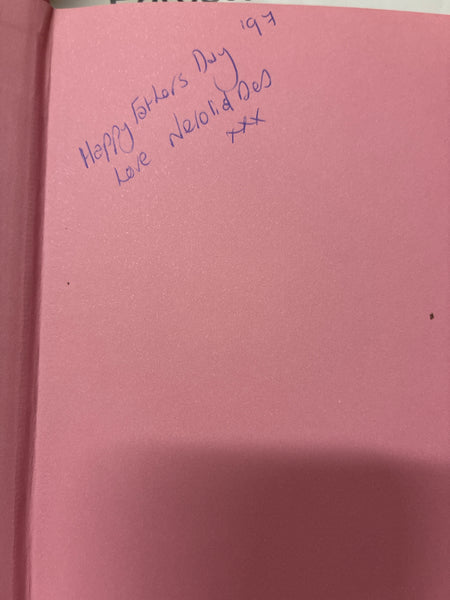 '97
Happy Fathers Day
Love
Des
xxx